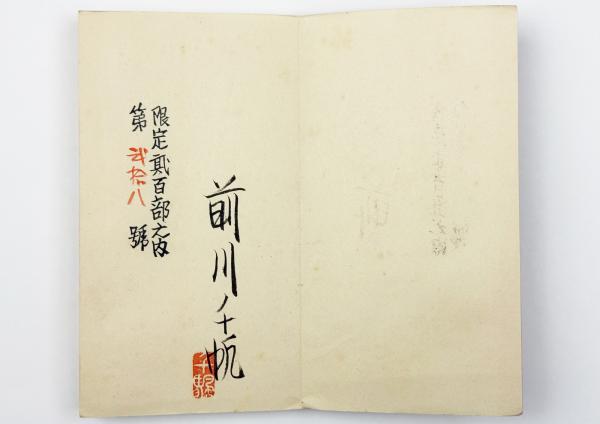 前川千帆
限定貳百部之内
第弐拾八號